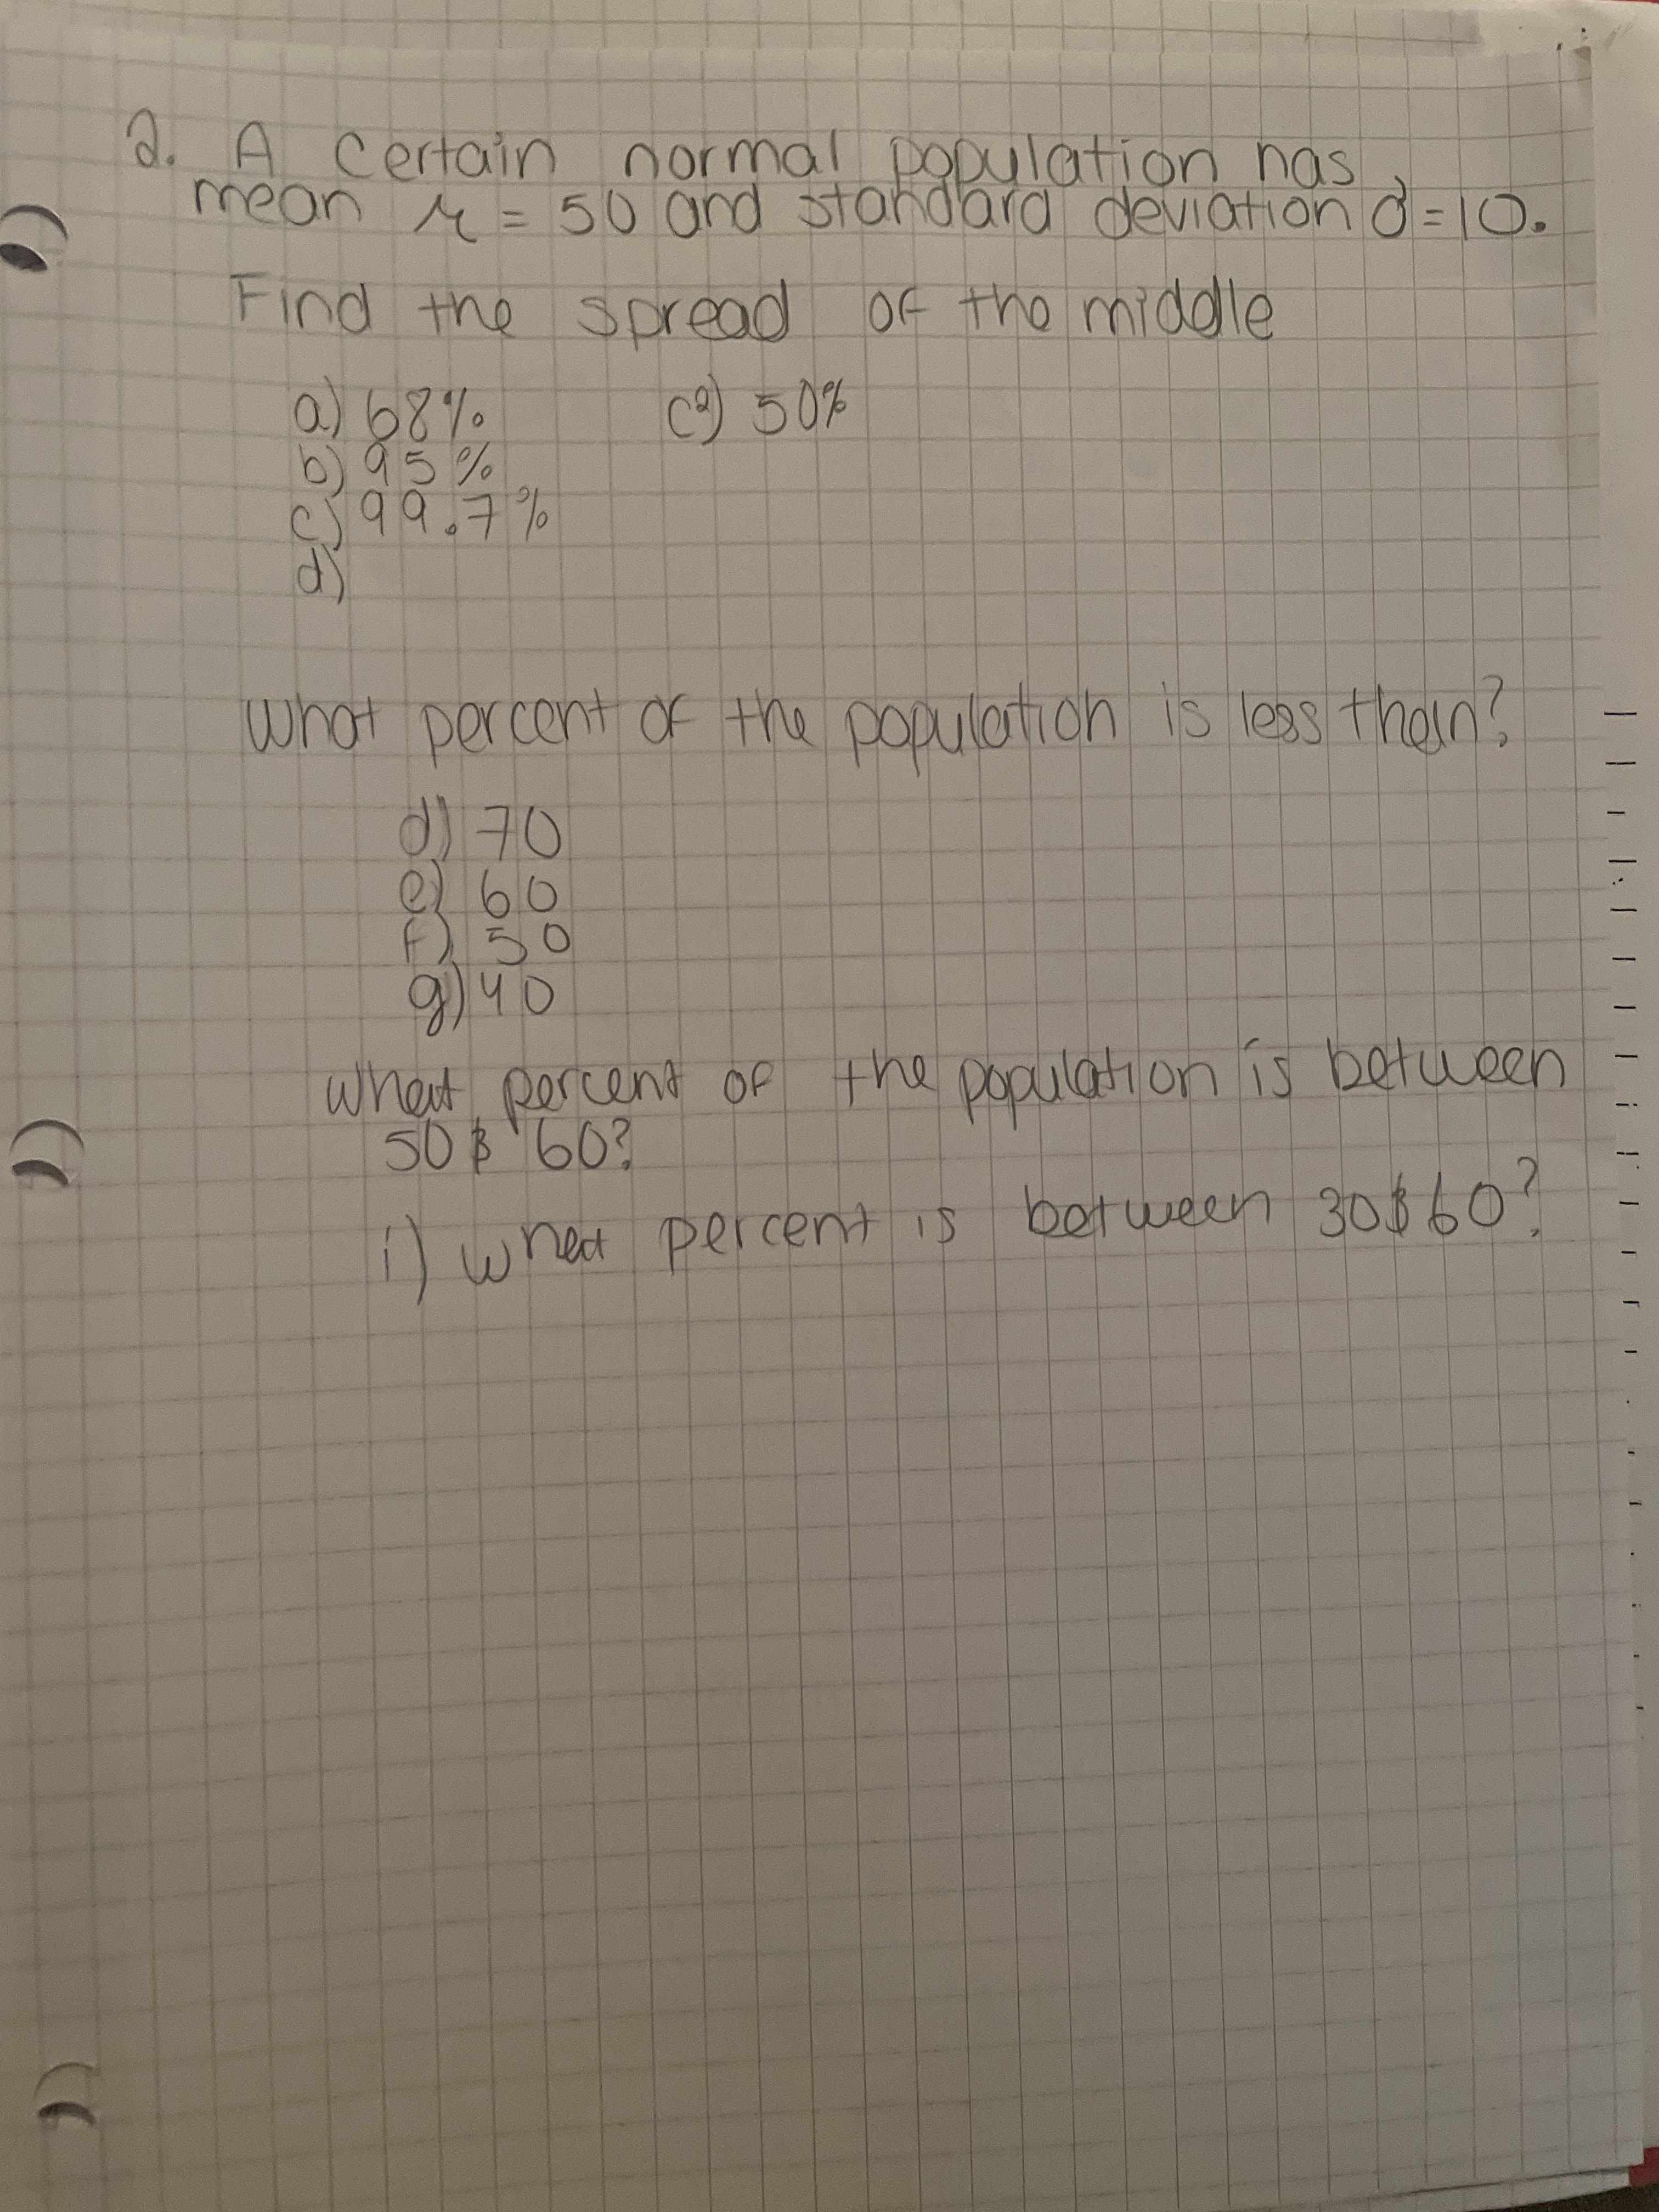 2. A certain normal population has
mean μ = 50 and standard deviation σ = 10.
Find the spread of the middle
a) 68% c²) 50%
b) 95%
c) 99.7%
d)
What percent of the population is less than?
d) 70
e) 60
f) 50
g) 40
What percent of the population is between
50 & 60?
i) What percent is between 30 & 60?